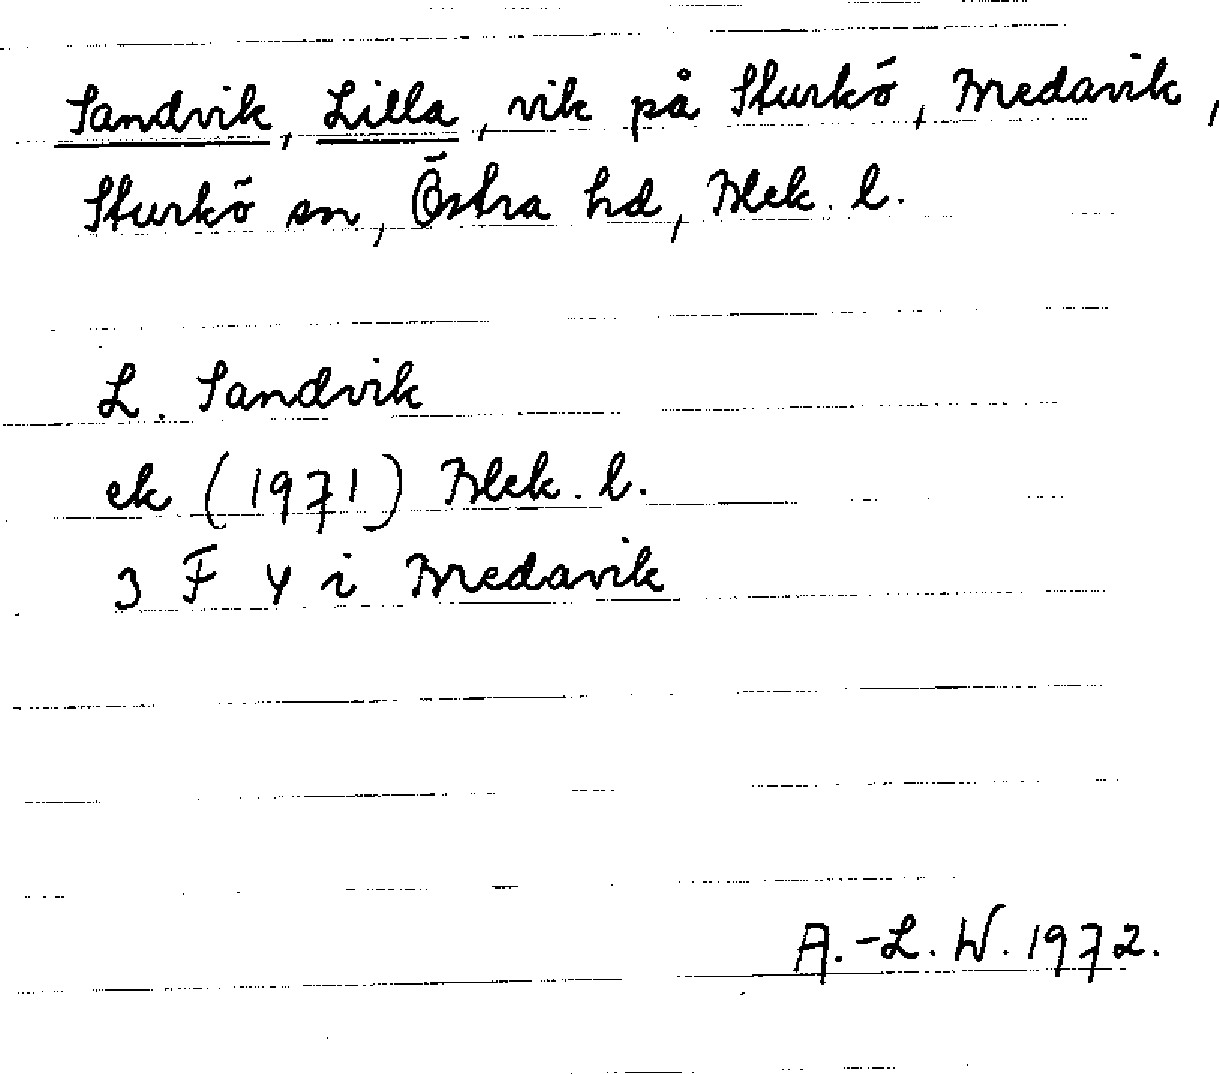 Sandvik, Lilla, vik på Sturkö, Bredavik,
Sturkö sn, Östra hd, Blek. l.
L. Sandvik
ek (1971) Blek. l.
3 F 4 i Bredavik
A.-L. W. 1972.